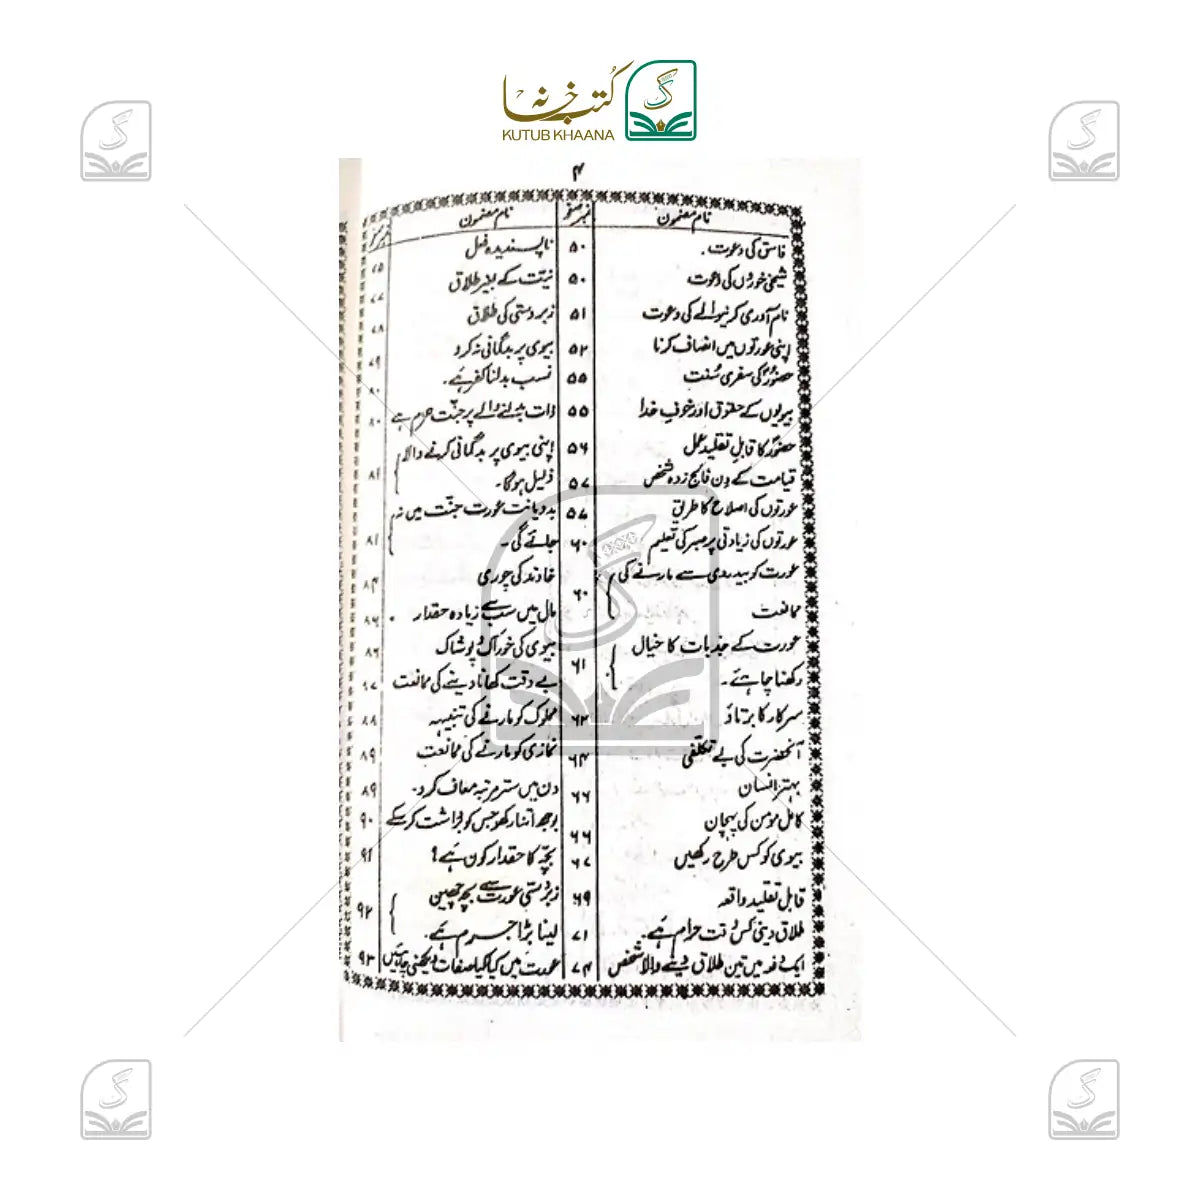 کتب خانہ
KUTUB KHAANA
۴
نام مضمون نمبر صفحہ
فاسق کی دعوت۔ ۵۰
شیخی خوروں کی دعوت ۵۰
نام آوری کرنیوالے کی دعوت ۵۱
اپنی عورتوں میں انصاف کرنا ۵۲
حضورؐ کی سفری سُنت ۵۵
بیویوں کے حقوق اور خوفِ خدا ۵۵
حضورؐ کا قابلِ تقلید عمل ۵۶
قیامت کے دن فالج زدہ شخص ۵۷
عورتوں کی اصلاح کا طریق ۵۷
عورتوں کی زیادتی پر صبر کی تعلیم ۶۰
عورت کو بیدردی سے مارنے کی
ممانعت ۶۰
عورت کے جذبات کا خیال
رکھنا چاہئے۔ ۶۱
سرکار کا برتاؤ ۶۲
آنحضرت کی بے تکلفی ۶۴
بہتر انسان ۶۶
کامل مومن کی پہچان ۶۶
بیوی کو کس طرح رکھیں ۶۷
قابل تقلید واقعہ ۶۹
طلاق دینی کس وقت حرام ہے۔ ۷۱
ایک دفعہ میں تین طلاق دینے والا شخص ۷۴
نام مضمون نمبر صفحہ
ناپسندیدہ فعل
نیت کے بغیر طلاق
زبردستی کی طلاق ۷۸
بیوی پر بدگمانی نہ کرو ۷۹
نسب بدلنا کفر ہے۔ ۸۰
ذات بدلنے والے پر جنّت حرام ہے ۸۰
اپنی بیوی پر بدگمانی کرنے والا
ذلیل ہوگا۔ ۸۱
بددیانت عورت جنّت میں نہ
جائے گی۔ ۸۱
خاوند کی چوری ۸۴
مال میں سب سے زیادہ حقدار ۸۶
بیوی کی خوراک و پوشاک ۸۶
بے وقت کھانا دینے کی ممانعت
مملوک کو مارنے کی تنبیہہ ۸۸
نمازی کو مارنے کی ممانعت ۸۹
دن میں ستر مرتبہ معاف کرو۔ ۸۹
بوجھ اتنا رکھو جس کو برداشت کرسکے ۹۰
بچّہ کا حقدار کون ہے؟ ۹۱
زبردستی عورت سے بچہ چھین
لینا بڑا جرم ہے۔ ۹۲
عورت میں کیا کیا صفات دیکھنی چاہئیں ۹۳